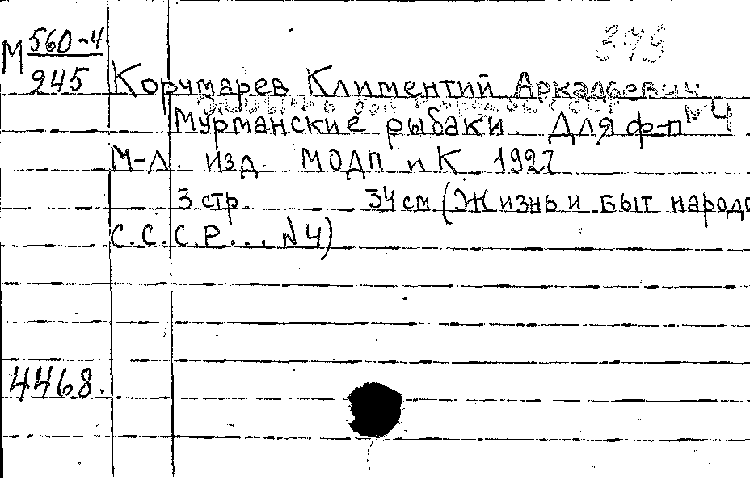 М 560-4
945
Корчмарев Климентий Аркадьевич
Мурманские рыбаки. Для ф-п № 4
М-Л. изд. МОДП и К 1927
3 стр. 34 см. (Жизнь и быт народо
С.С.С.Р... № 4)
4468.